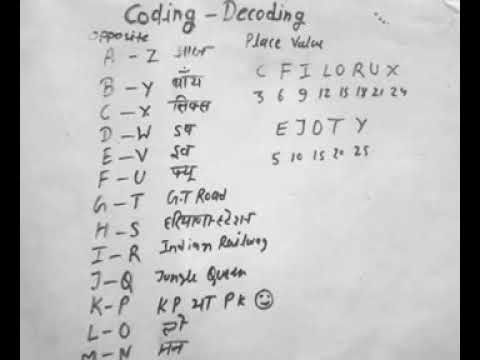 Coding - Decoding
opposite Place Value
A - Z आज़
B - Y बॉय C F I L O R U X
C - X सिक्स 3 6 9 12 15 18 21 24
D - W डब E J O T Y
E - V इव 5 10 15 20 25
F - U फ्यू
G - T G.T Road
H - S हरियाणा-स्टेशन
I - R Indian Railway
J - Q Jungle Queen
K - P K P या P K ☺
L - O लो
M - N मन